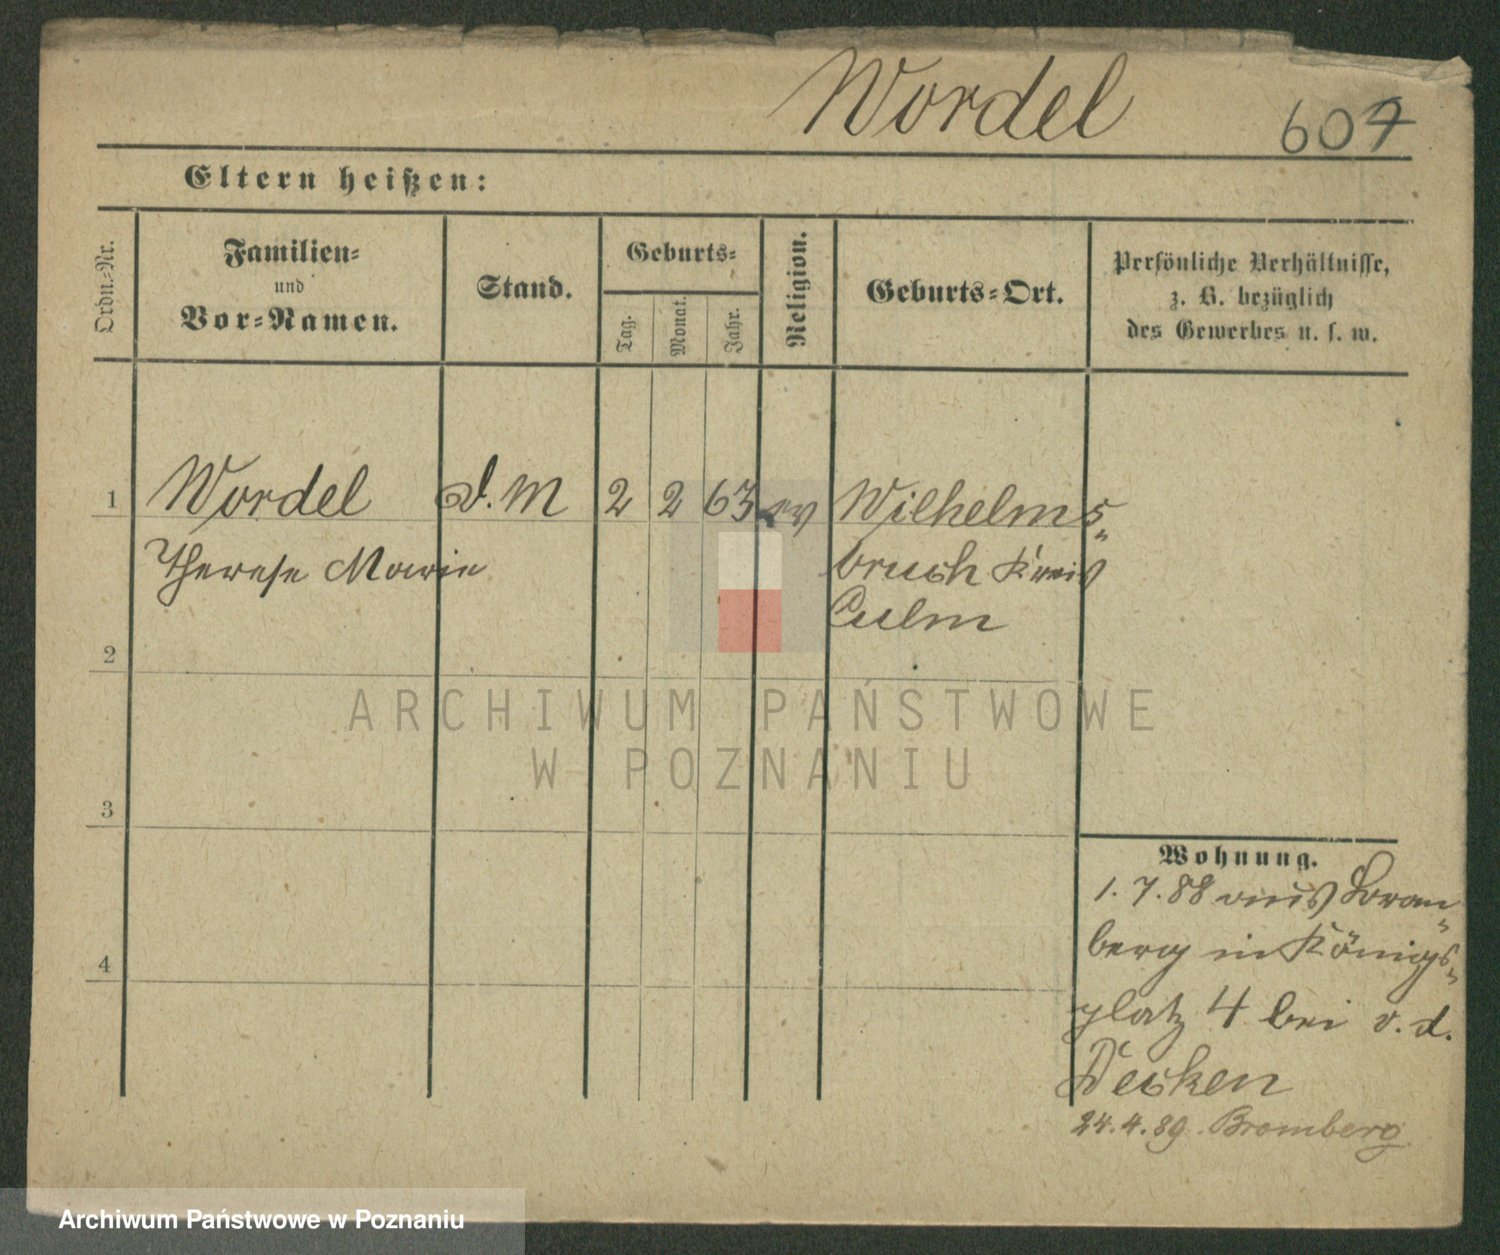 Wordel 607
Eltern heißen:
Ordn.-Nr.
Familien-
und
Vor-Namen.
Stand.
Geburts-
Tag.
Monat.
Jahr.
Religion.
Geburts-Ort.
Persönliche Verhältnisse,
z. B. bezüglich
des Gewerbes u. s. w.
1 Wordel d. M 2 2 63 ev Wilhelms-
Therese Marie bruch Kreis
Culm
2
3
4
Wohnung.
1. 7. 88 aus Brom-
berg in Königs-
platz 4 bei v. d.
Decken
24. 4. 89. Bromberg
ARCHIWUM PAŃSTWOWE
W POZNANIU
Archiwum Państwowe w Poznaniu